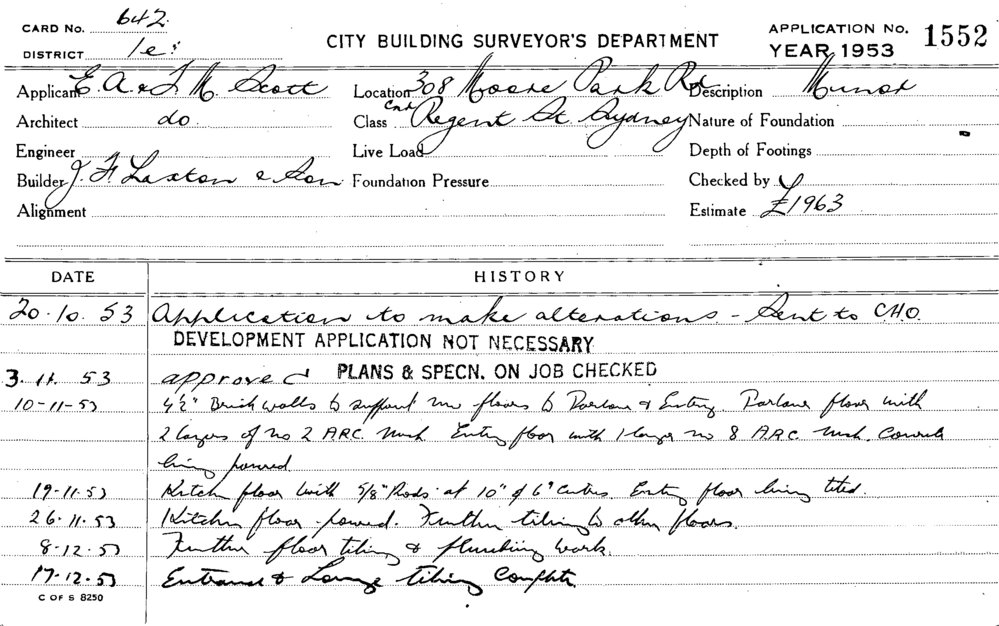 CARD No. 642
DISTRICT 1e
CITY BUILDING SURVEYOR'S DEPARTMENT
APPLICATION No. 1552
YEAR 1953
Applicant E. A. & F. M. Scott
Location 308 Moore Park Rd
Description Minor
Architect do.
Class Cnr Regent St. Sydney
Nature of Foundation
Engineer
Live Load
Depth of Footings
Builder J. F. Laxton & Son
Foundation Pressure
Checked by
Alignment
Estimate £1963
DATE HISTORY
20.10.53 Application to make alterations - Sent to C.H.O.
DEVELOPMENT APPLICATION NOT NECESSARY
3.11.53 approved PLANS & SPECN. ON JOB CHECKED
10-11-53 4½" Brick walls to support new floors to Parlour & Entry. Parlour floor with
2 layers of no 2 A.R.C. Mesh Entry floor with 1 layer no 8 A.R.C. Mesh. Concrete
being poured
19-11-53 Kitchen floor with 5/8" Rods at 10" & 6" Centres. Entry floor being tiled.
26.11.53 Kitchen floor poured. Further tiling to other floors.
8-12-53 Further floor tiling & plumbing work.
17-12.53 Entrance & Lounge tiling Complete
C OF S 8250